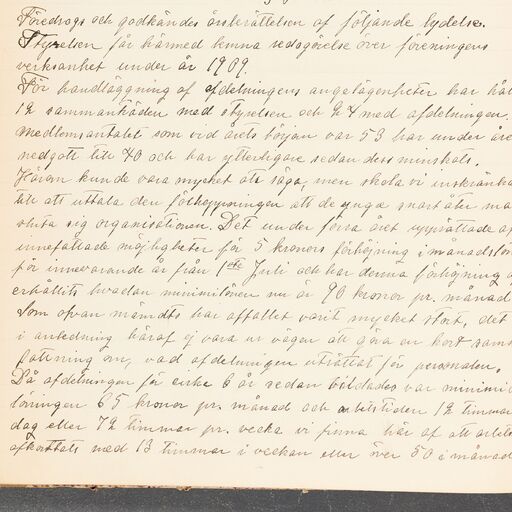 Föredrogs och godkändes årsberättelsen af följande lydelse.
Styrelsen får härmed lemna redogörelse över föreningens
verksamhet under år 1909.
För handläggning af afdelningens angelägenheter har hål
12 sammanträden med styrelsen och 24 med afdelningen.
Medlemsantalet som vid årets början var 53 har under åre
nedgått till 40 och har ytterligare sedan dess minskats.
Härom kunde vara mycket att säga, men skola vi inskränka
till att uttala den förhoppningen att de ynga snart åter må
sluta sig organisationen. Det under förra året upprättade af
innefattade möjligheter för 5 kronors förhöjning i månadslön
för innevarande år från 1ste Juli och har denna förhöjning
erhållits hvadan minimilönen nu är 90 kronor pr. månad
Som ofvan nämndts har affallet varit mycket stort, det
i anledning häraf ej vara ur vägen att göra en kort sam
fattning om, vad afdelningen uträttat för personalen.
Då afdelningen för cirka 6 år sedan bildades var minimi
löningen 65 kronor pr. månad och arbetstiden 12 timmar
dag eller 72 timmar pr. vecka vi finna här af att arbets
afkortats med 13 timmar i veckan eller över 50 i månad